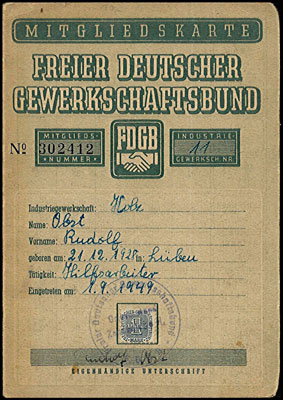 MITGLIEDSKARTE
FREIER DEUTSCHER
GEWERKSCHAFTSBUND
MITGLIEDS-
NUMMER
№ 302412
FDGB
INDUSTRIE-
11
GEWERKSCH. NR.
Industriegewerkschaft: Holz
Name: Obst
Vorname: Rudolf
geboren am: 21.12.1925 in: Lüben
Tätigkeit: Hilfsarbeiter
Eingetreten am: 1.9.1949
Rudolf Obst
EIGENHÄNDIGE UNTERSCHRIFT